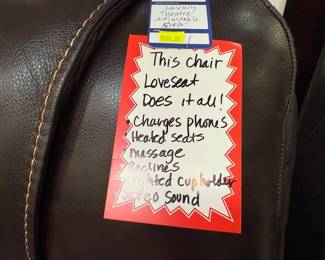 Luxury
Theatre
Adjustable
Sofa
This chair
Loveseat
Does it all!
• Charges phones
• Heated seats
Massage
Reclines
Lighted cupholder
Stereo Sound